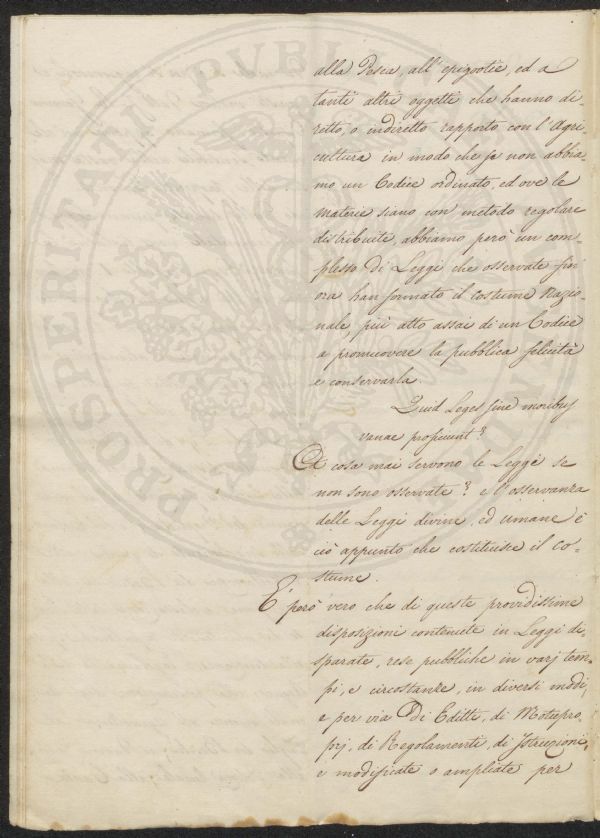 alla Pesca, all'epizootie, ed a
tanti altri oggetti che hanno di-
retto, o indiretto rapporto con l'Agri-
cultura in modo che se non abbia-
mo un Codice ordinato, ed ove le
materie siano con metodo regolare
distribuite, abbiamo però un com-
plesso di Leggi, che osservate fin
ora han formato il costume Nazio-
nale, più atto assai di un Codice
a promuovere la pubblica felicità
e conservarla.
Quid Leges sine moribus
vanae proficiunt?
A cosa mai servono le Leggi se
non sono osservate? e l'osservanza
delle Leggi divine, ed umane è
ciò appunto che costituisce il co-
stume.
E' però vero che di queste providissime
disposizioni contenute in Leggi di-
sparate, rese pubbliche in varj tem-
pi, e circostanze, in diversi modi,
e per via di Editti, di Motupro-
prj, di Regolamenti, di Istruzioni,
e modificate o ampliate per
PROSPERITATI PVBLI